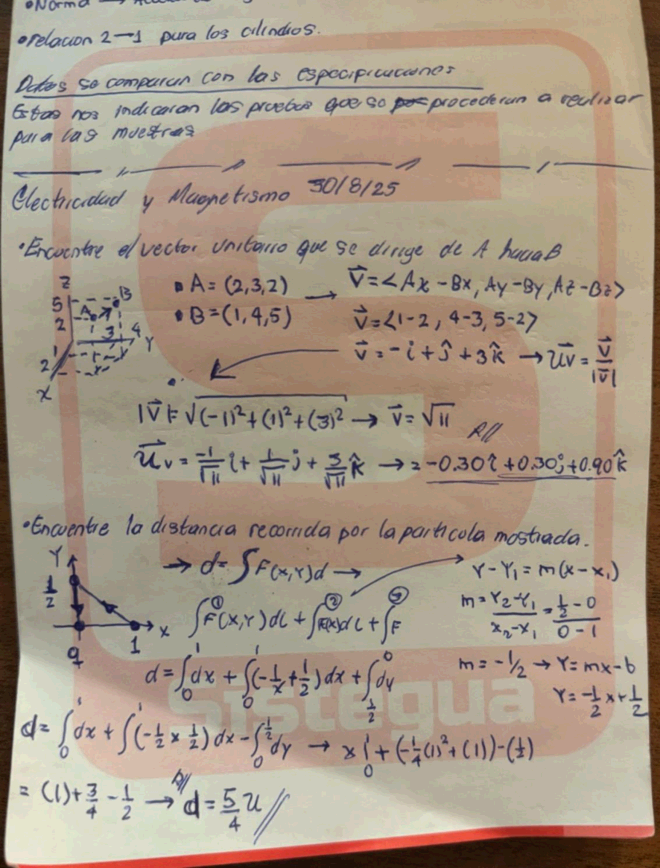 •Norma →
•relacion 2→1 para los cilindros.
Datos se comparan con las especificaciones
Estas nos indicaran las pruebas que se procederan a realizar
para las muestras
Electricidad y Magnetismo 30/8/25
•Encuentre el vector unitario que se dirige de A hacia B
Z
5
2
1
2
X
A
B
3
4
Y
• A = (2,3,2) → V⃗ = <Ax - Bx, Ay - By, Az - Bz>
• B = (1,4,5) v⃗ = <1-2, 4-3, 5-2>
v⃗ = -î + ĵ + 3k̂ → u⃗v = v⃗/|v⃗|
|v⃗| = √((-1)² + (1)² + (3)²) → v⃗ = √11
R//
u⃗v = -1/√11 î + 1/√11 ĵ + 3/√11 k̂ → = -0.30î + 0.30ĵ + 0.90k̂
•Encuentre la distancia recorrida por la particula mostrada.
Y
1/2
X
1
→ d = ∫F(x,y)d →
Y - Y₁ = m(x - x₁)
m = Y₂-Y₁/x₂-x₁ = 1/2 - 0/0 - 1
① ② ③
∫F(x,Y)dl + ∫F(x)dl + ∫F
m = -1/2 → Y = mx - b
Y = -1/2x + 1/2
d = ∫₀¹dx + ∫₀¹(-1/x + 1/2)dx + ∫½⁰dy
d = ∫₀¹dx + ∫¹(-1/2 x 1/2)dx - ∫₀^½dy → x|₀¹ + (-1/4(1)² + (1)) - (1/2)
= (1) + 3/4 - 1/2 → R// d = 5/4 u//
Sistegua